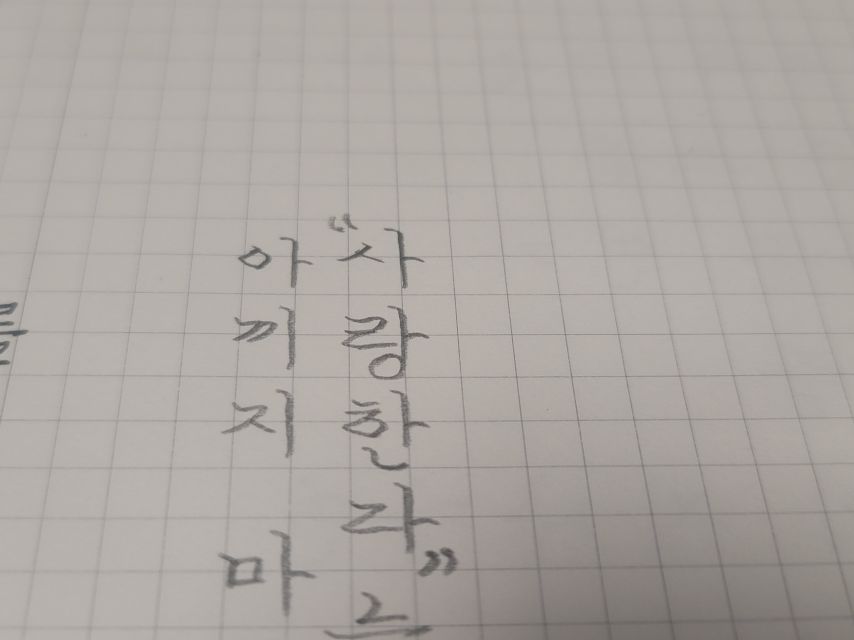 “사랑한라”
아끼지 마